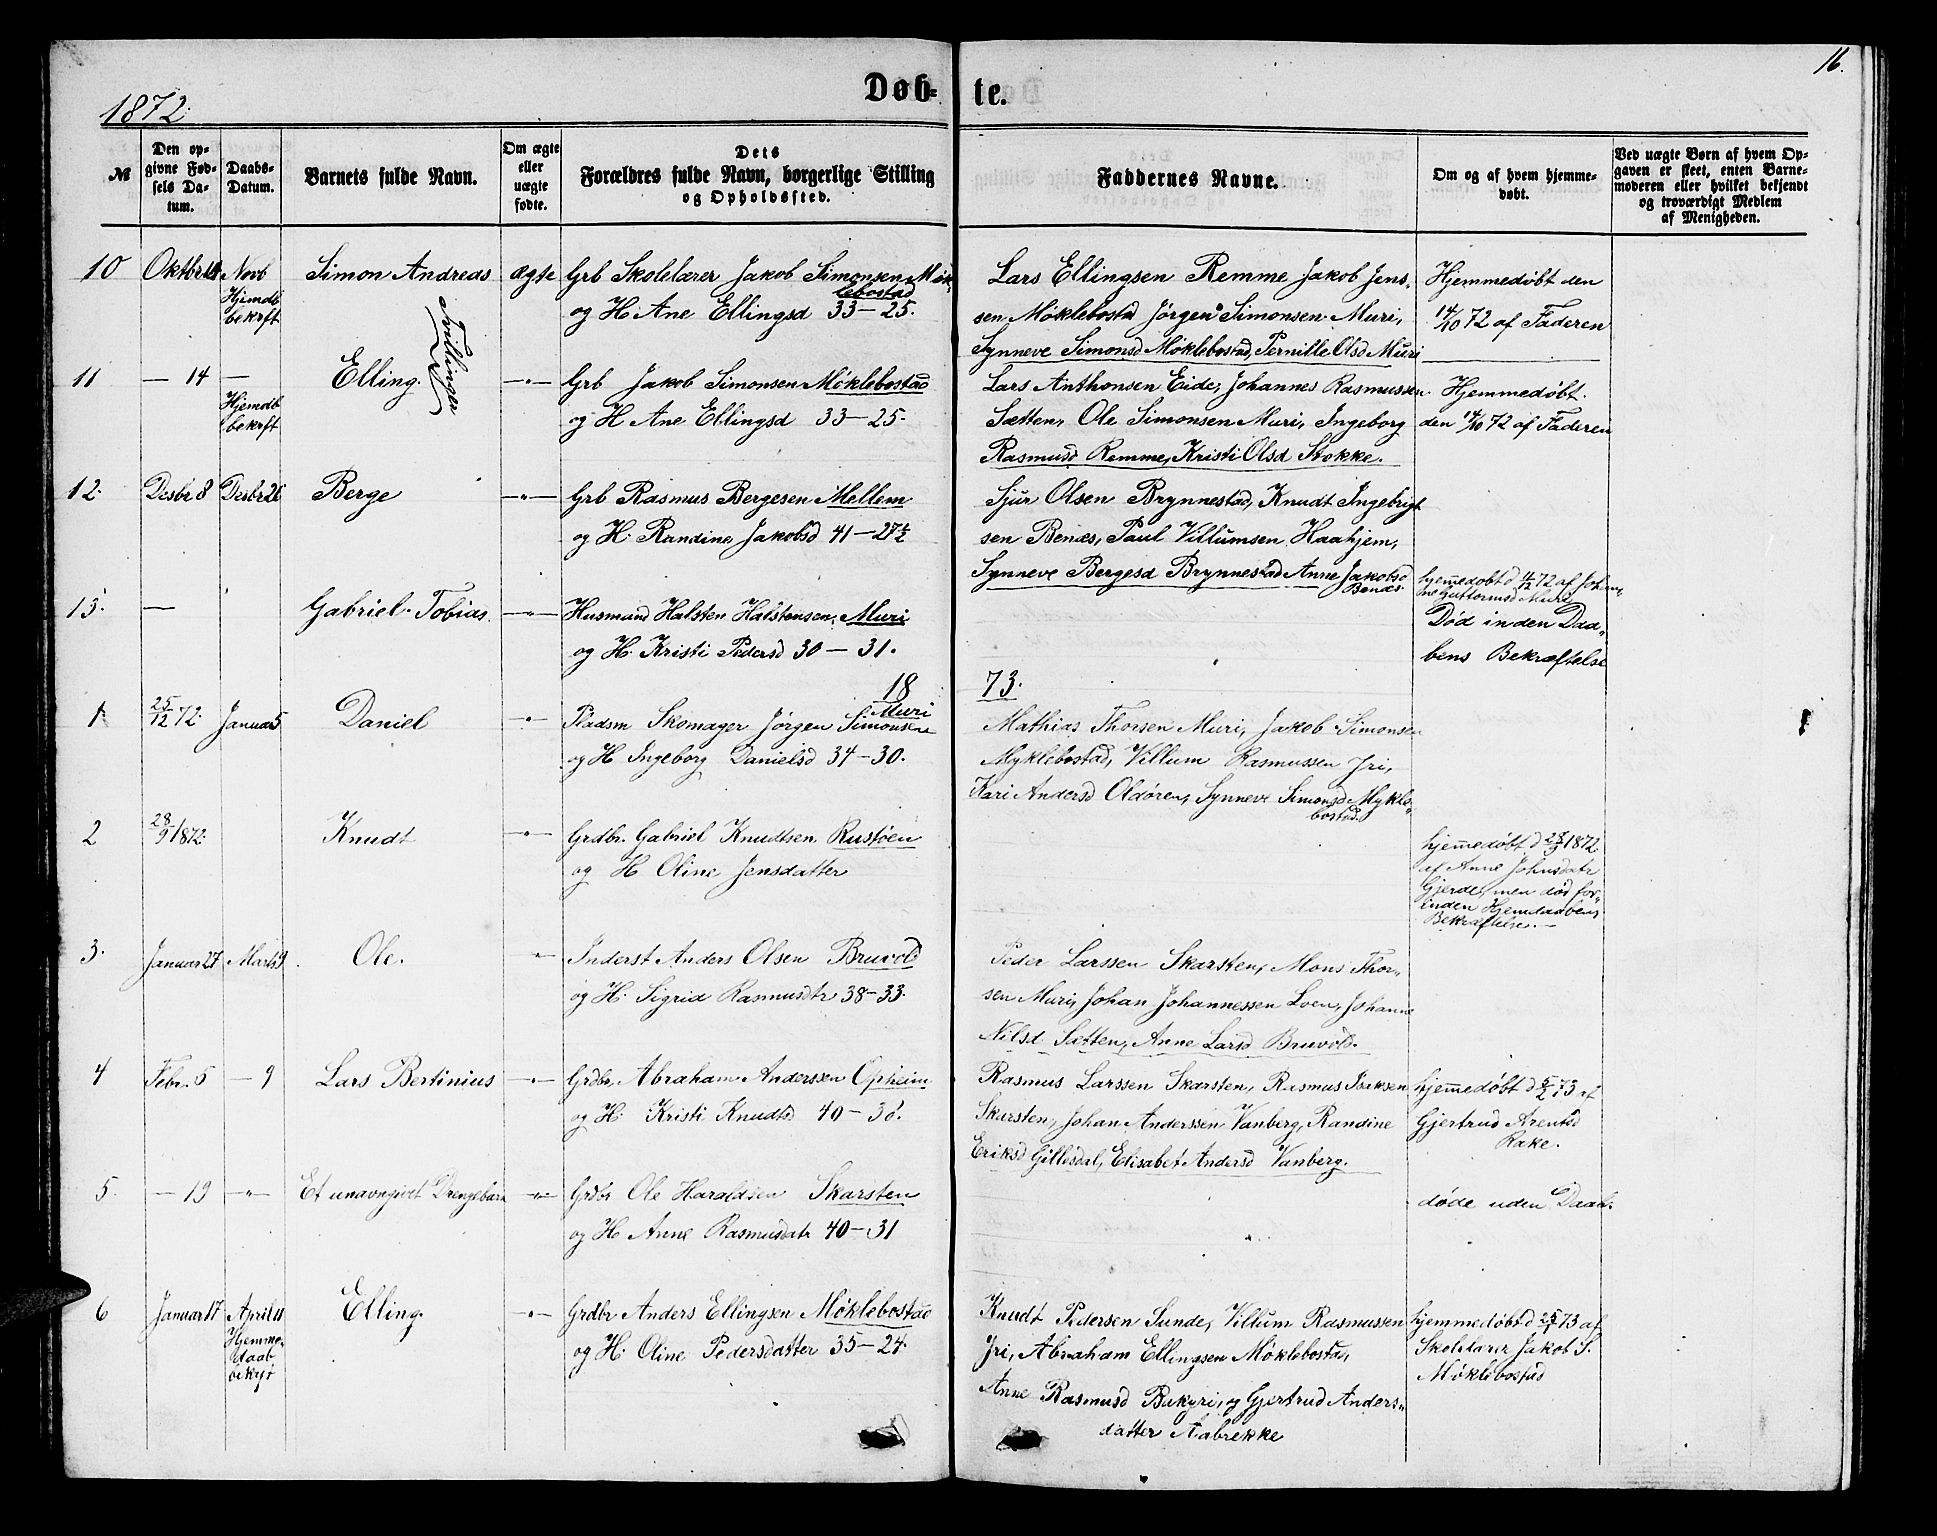 16.
1872.
Døb- te.
№
Den op-
givne Fød-
sels Da-
tum.
Daabs-
Datum.
Barnets fulde Navn.
Om ægte
eller
uægte
fødte.
Dets
Forældres fulde Navn, borgerlige Stilling
og Opholdssted.
Faddernes Navne.
Om og af hvem hjemme-
døbt.
Ved uægte Børn af hvem Op-
gaven er skeet, enten Barne-
moderen eller hvilket bekjendt
og troværdigt Medlem
af Menigheden.
10 Oktbr Novb Simon Andreas ægte Grb Skolelærer Jakob Simonsen Møk
lebostad
Hjemdb
bekrft
og H. Ane Ellingsd 33-25.
Lars Ellingsen Remme Jakob Jens-
sen Møklebostad Jørgen Simonsen Muri,
Synneve Simonsd Møklebostad, Pernille Olsd Muri
Hjemmedøbt den
14/10 72 af Faderen
Tvillinger
11 — 14 — Elling. —"— Grb Jakob Simonsen Møklebostad
Hjemdb
bekrft
og H Ane Ellingsd 33-25.
Lars Anthonsen Eide, Johannes Rasmussen
Sætten, Ole Simonsen Muri, Ingeborg
Rasmusd Remme, Kristi Olsd Stokke.
Hjemmedøbt.
den 14/10 72 af Faderen
12. Desbr 8 Desbr 26 Berge —"— Grb Rasmus Bergesen Mellem
og H. Randine Jakobsd 41-27½
Sjur Olsen Brynnestad, Knudt Ingebrigt
sen Benæs, Paul Villumsen Haahjem,
Synneve Bergesd Brynnestad Anne Jakobsd
Benæs.
13. — Gabriel Tobias. —"— Husmand Halsten Halstensen, Muri
og H. Kristi Pedersd 30-31.
hjemmedøbt d 72 af
Guttormsd Muri,
Død inden Daa-
bens Bekræftelse
1873.
1 25/12 72. Januar 5 Daniel " Pladsm Skomager Jørgen Simonsen
Muri
og H Ingeborg Danielsd 34-30.
Mathias Thorsen Muri, Jakob Simonsen
Myklebostad, Villum Rasmussen Jri,
Kari Andersd Oldøren, Synneve Simonsd Mykle-
bostad.
2 28/9 1872. Knudt —"— Grdbr. Gabriel Knudtsen Rustøen
og H Oline Jensdatter
hjemmedøbt d 28/9 1872
af Anne Johnsdatr
Gjerde, men død for-
inden Hjemdaabens
Bekræftelse.—
3. Januar 27 Marts 9 Ole. " Inderst Anders Olsen Bruvold
og H. Sigrid Rasmusdtr 38-33.
Peder Larssen Skarsten, Mons Thor-
sen Muri, Johan Johannessen Loen, Johanne
Nilsd Sætten, Anne Larsd Bruvold.
4 Febr. 5 — 9 Lars Bertinius —"— Grdbr. Abraham Anderssen Opheim
og H. Kristi Knudtsd 40-38.
Rasmus Larssen Skarsten, Rasmus Isaksen
Skarsten, Johan Anderssen Vanberg, Randine
Eriksd Gillesdal, Elisabet Andersd Vanberg.
hjemmedøbt d 5/2 73 af
Gjertrud Arentsd
Rake.
5. — 19 —"— Et unavngivet Drengebarn —"— Grdbr Ole Haraldsen Skarsten
og H Anne Rasmusdatr 40-31
"
døde uden Daab.
6 Januar 17 April 11 Elling. " Grdbr Anders Ellingsen Møklebostad
Hjemme-
daab
bekrft
og H. Oline Pedersdatter 35-24.
Knudt Pedersen Sunde, Villum Rasmussen
Jri, Abraham Ellingsen Møklebostad,
Anne Rasmusd Bakyri, og Gjertrud Anders-
datter Aabrekke
hjemmedøbt d 25/1 73 af
Skolelærer Jakob S.
Møklebostad